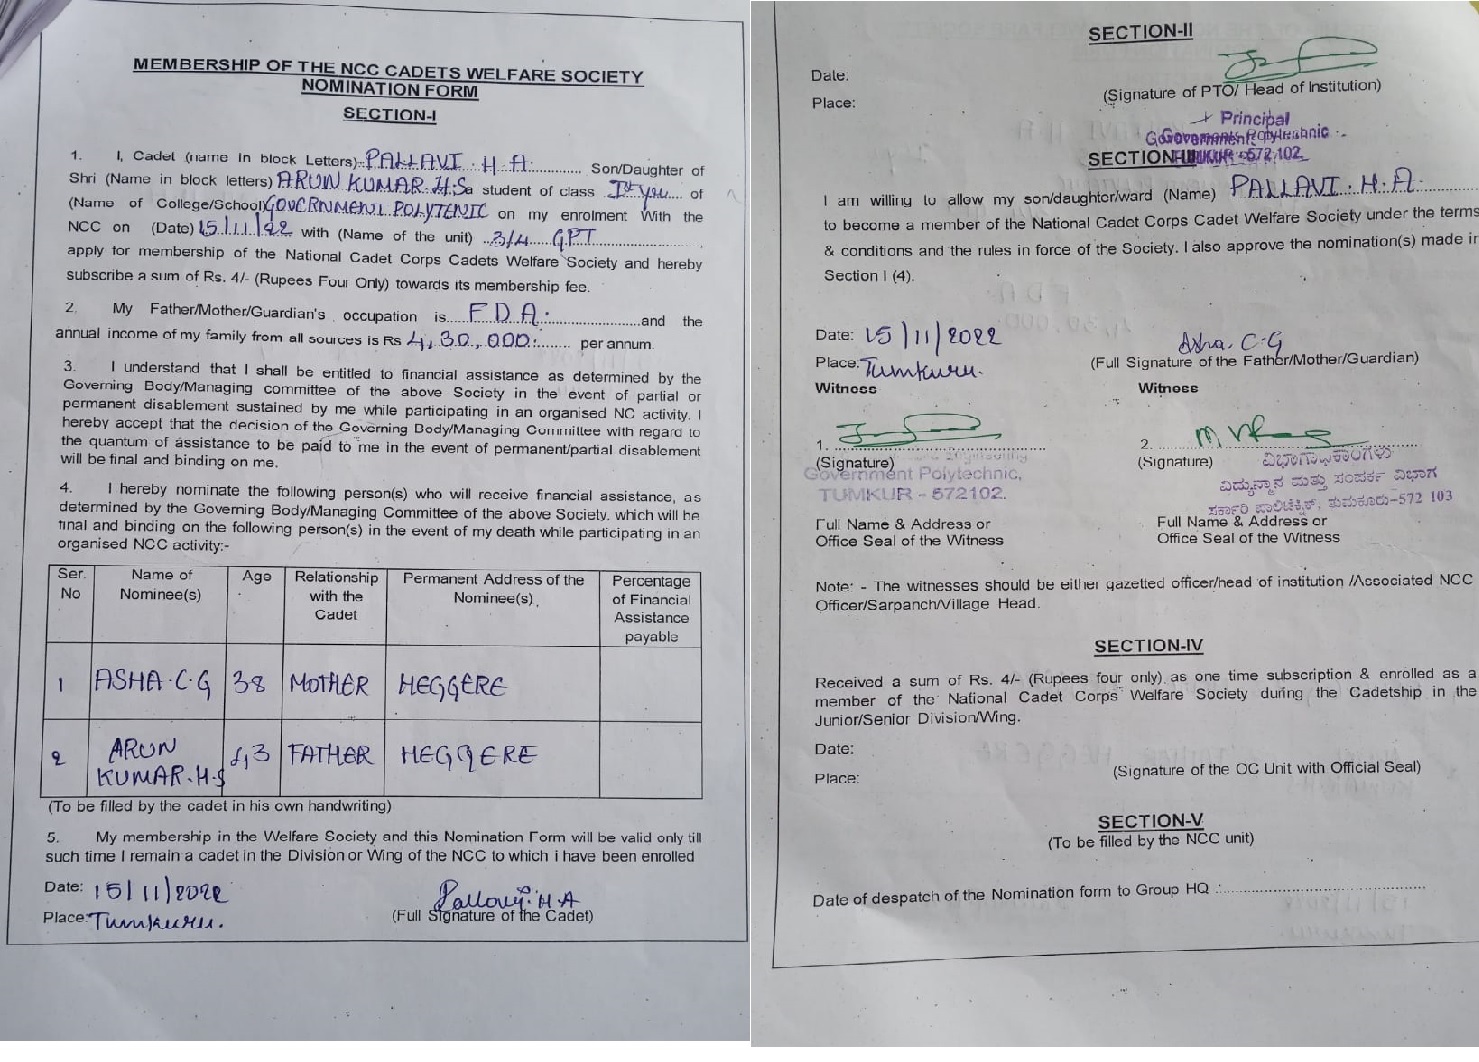 MEMBERSHIP OF THE NCC CADETS WELFARE SOCIETY
NOMINATION FORM
SECTION-I
1. I, Cadet (name In block Letters) PALLAVI. H. A. Son/Daughter of
Shri (Name in block letters) ARUN KUMAR.H.S a student of class Ist year of
(Name of College/School) GOVERNMENT POLYTENIC on my enrolment With the
NCC on (Date) 15/11/22 with (Name of the unit) ..3/4..... GPT
apply for membership of the National Cadet Corps Cadets Welfare Society and hereby
subscribe a sum of Rs. 4/- (Rupees Four Only) towards its membership fee.
2. My Father/Mother/Guardian's occupation is.... F D A. ....and the
annual income of my family from all sources is Rs 4,30,000. per annum.
3. I understand that I shall be entitled to financial assistance as determined by the
Governing Body/Managing committee of the above Society in the event of partial or
permanent disablement sustained by me while participating in an organised NC activity. I
hereby accept that the decision of the Governing Body/Managing Committee with regard to
the quantum of assistance to be paid to me in the event of permanent/partial disablement
will be final and binding on me.
4. I hereby nominate the following person(s) who will receive financial assistance, as
determined by the Governing Body/Managing Committee of the above Society. which will be
final and binding on the following person(s) in the event of my death while participating in an
organised NCC activity:-
Ser. No Name of Nominee(s) Age Relationship with the Cadet Permanent Address of the Nominee(s) Percentage of Financial Assistance payable
1 ASHA.C.G 38 MOTHER HEGGERE
2 ARUN KUMAR.H.S 43 FATHER HEGGERE
(To be filled by the cadet in his own handwriting)
5. My membership in the Welfare Society and this Nomination Form will be valid only till
such time I remain a cadet in the Division or Wing of the NCC to which i have been enrolled
Date: 15/11/2022
Pallavi. H.A
Place: Tumkuru.
(Full Signature of the Cadet)
SECTION-II
Date:
Place:
(Signature of PTO/ Head of Institution)
Principal
Government Polytechnic
TUMKUR -572 102.
SECTION-III
I am willing to allow my son/daughter/ward (Name) PALLAVI. H. A.
to become a member of the National Cadet Corps Cadet Welfare Society under the terms
& conditions and the rules in force of the Society. I also approve the nomination(s) made in
Section I (4).
Date: 15/11/2022
Asha. C.G
Place: Tumkuru.
(Full Signature of the Father/Mother/Guardian)
Witness
Witness
1.
2.
(Signature)
(Signature)
Government Polytechnic,
TUMKUR - 572102.
ವಿಭಾಗಾಧಿಕಾರಿಗಳು
ವಿದ್ಯುನ್ಮಾನ ಮತ್ತು ಸಂಪರ್ಕ ವಿಭಾಗ
ಸರ್ಕಾರಿ ಪಾಲಿಟೆಕ್ನಿಕ್, ತುಮಕೂರು-572 103
Full Name & Address or
Office Seal of the Witness
Full Name & Address or
Office Seal of the Witness
Note: - The witnesses should be either gazetted officer/head of institution /Associated NCC
Officer/Sarpanch/Village Head.
SECTION-IV
Received a sum of Rs. 4/- (Rupees four only) as one time subscription & enrolled as a
member of the National Cadet Corps Welfare Society during the Cadetship in the
Junior/Senior Division/Wing.
Date:
Place:
(Signature of the OC Unit with Official Seal)
SECTION-V
(To be filled by the NCC unit)
Date of despatch of the Nomination form to Group HQ :